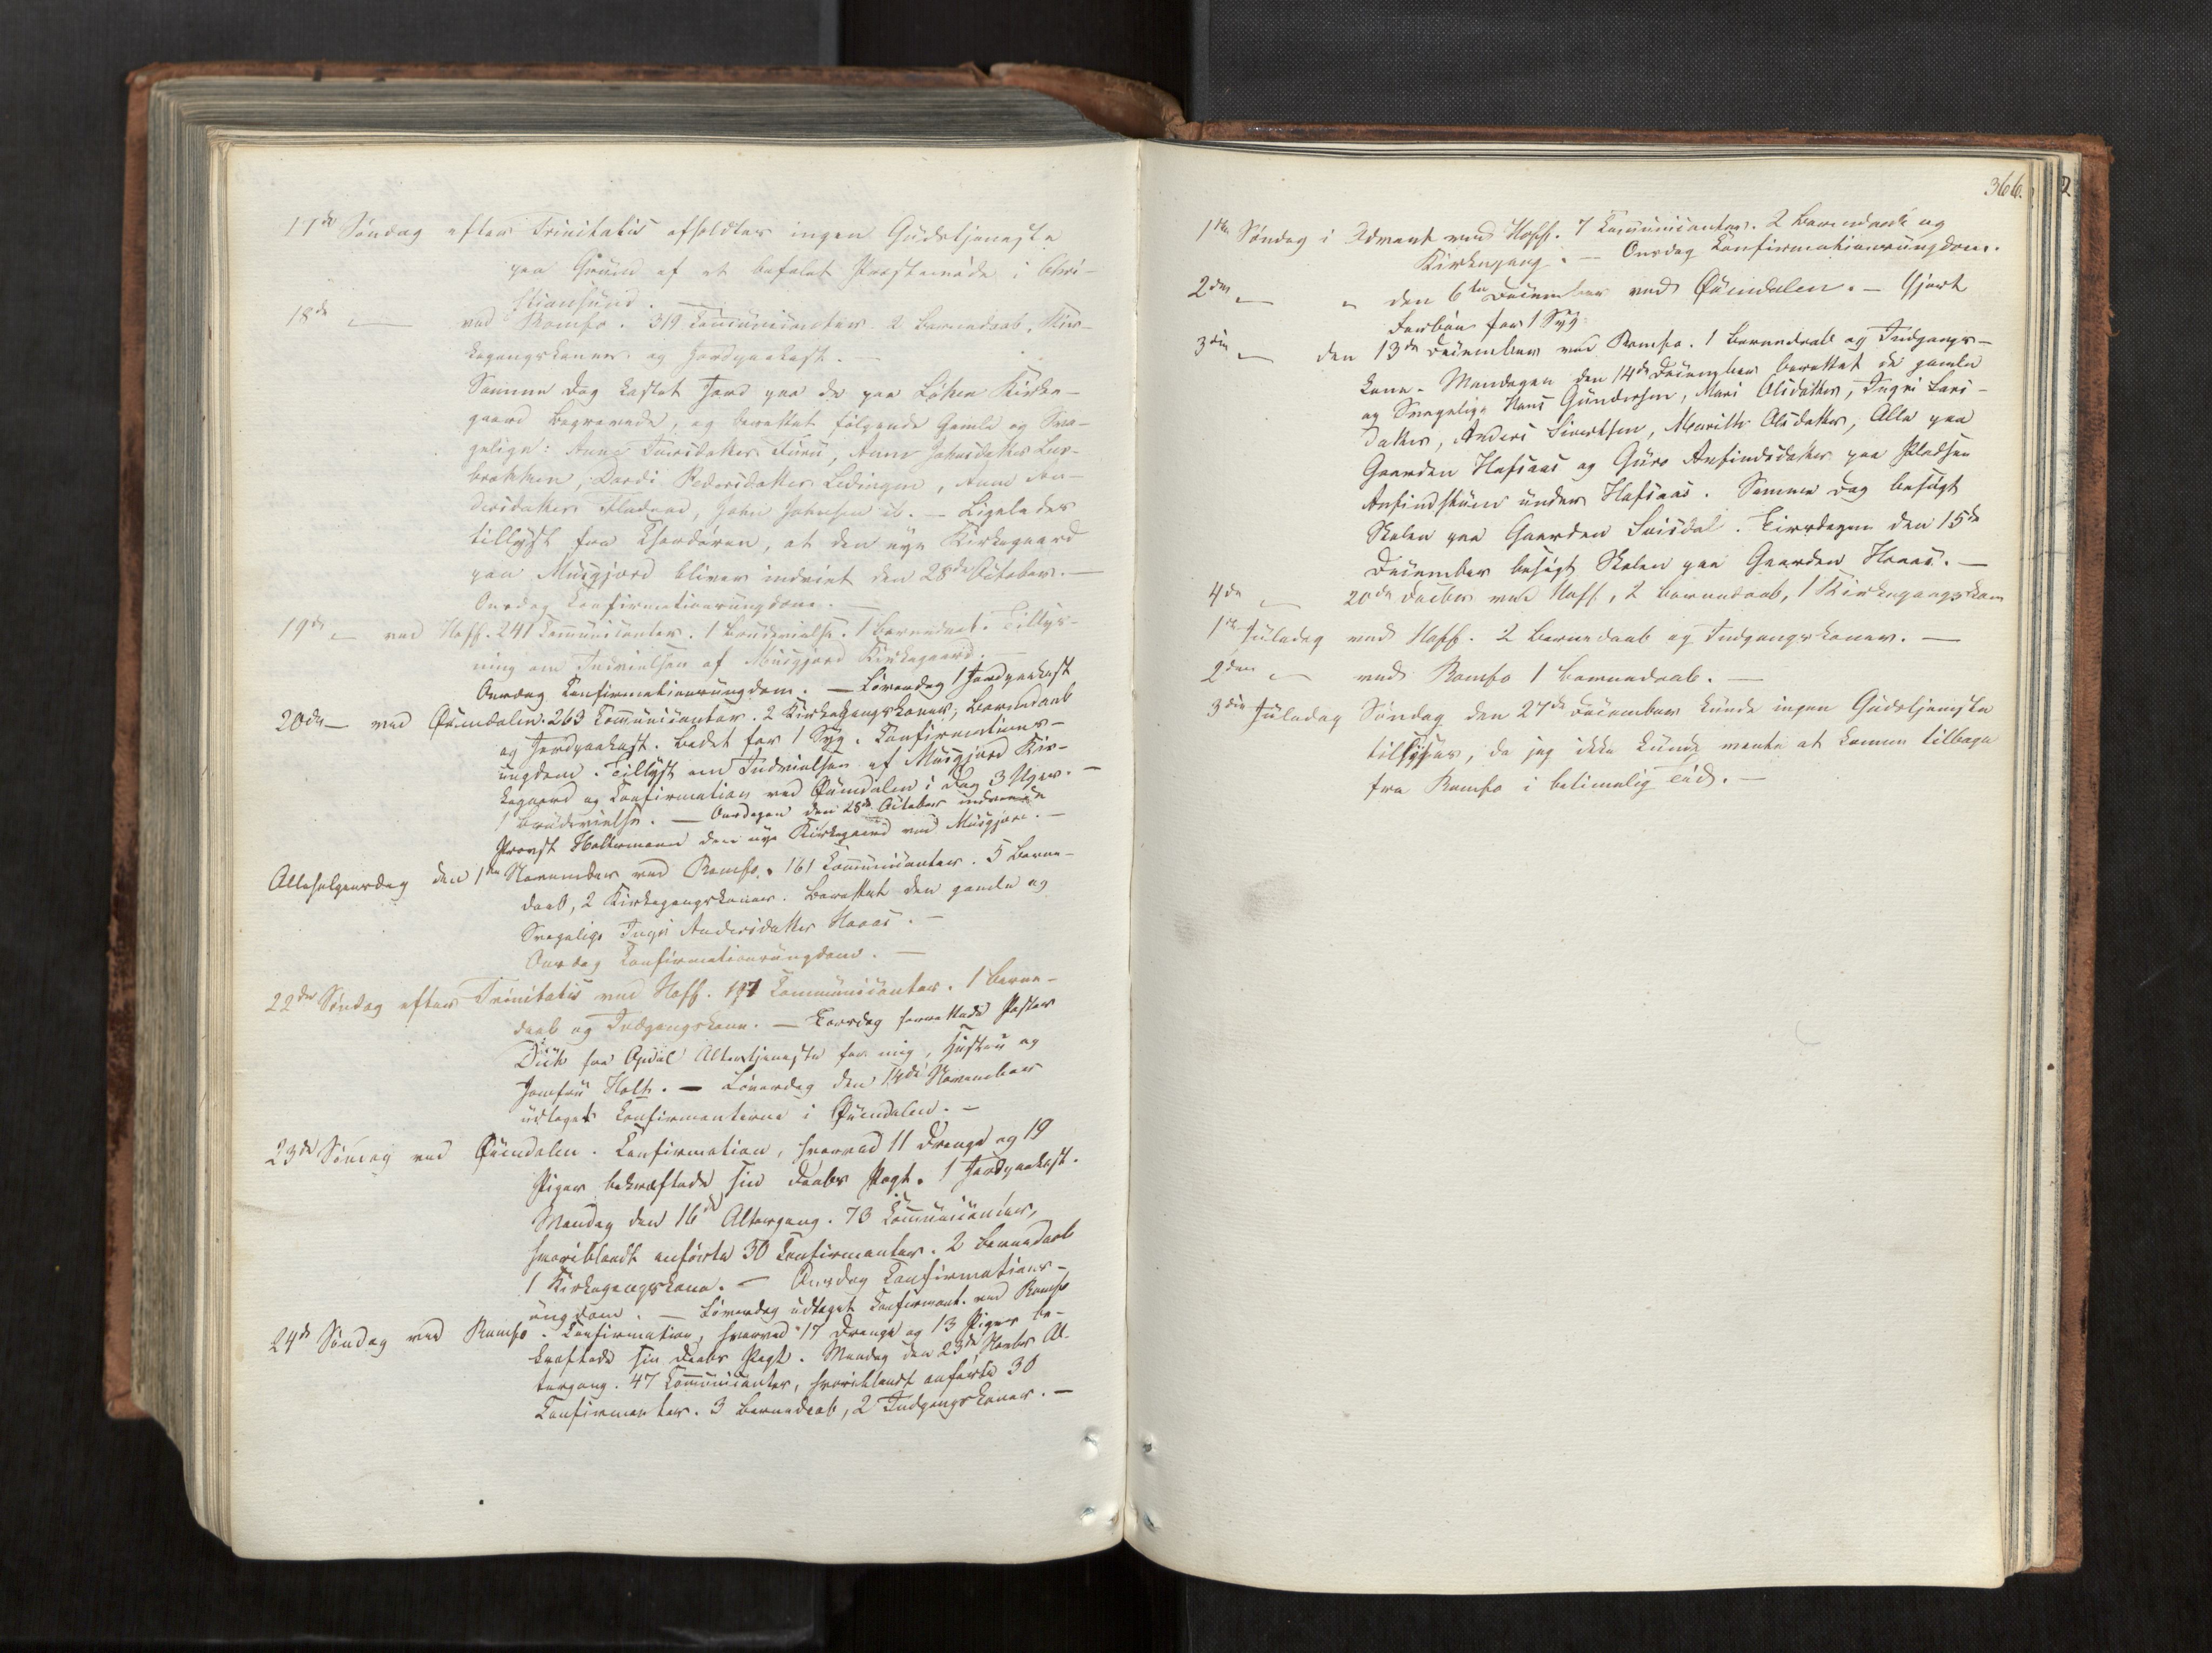 17de Søndag efter Trinitatis afholdtes ingen Gudstjeneste
paa Grund af et befalet Præstemøde i Chri-
stiansund. —
18de — ved Romfo. 319 Communicanter. 2 Barnedaab, Kir-
kegangskoner og Jordpaakast. —
Samme Dag kastet Jord paa de paa Løken Kirke-
gaard begravede, og berettet følgende Gamle og Sva-
gelige: Anne Iversdatter Furu, Anne Johnsdatter
Dordi Pedersdatter Anne An-
dersdatter John Johnsen ib. — Ligeledes
tillyst fra Chordøren, at den nye Kirkegaard
paa Musgjerd bliver indviet den 28de October. —
Onsdag Confirmationsungdom. —
19de — ved Hoff. 241 Communicanter. 1 Brudevielse. 1 Barnedaab. Tillys-
ning om Indvielsen af Musgjerd Kirkegaard. —
Onsdag Confirmationsungdom. — Løverdag 1 Jordpaakast
20de — ved Øxendalen. 263 Communicanter. 2 Kirkegangskoner, Barnedaab
og Jordpaakast. Bedet for 1 Syg. Confirmations-
ungdom. Tillyst om Indvielsen af Musgjerd Kir-
kegaard og Confirmation ved Øxendalen i Dag 3 Uger. —
1 Brudevielse. — Onsdagen den 28de October indviede
Provst Holtermann den nye Kirkegaard ved Musgjerd. —
Allehelgensdag den 1ste November ved Romfo. 161 Communicanter. 5 Barne-
daab, 2 Kirkegangskoner. Berettet den gamle og
Svagelige Ingri Andersdatter Haaas. —
Onsdag Confirmationsungdom. —
22de Søndag efter Trinitatis ved Hoff. 191 Communicanter. 1 Barne-
daab og Indgangskone. — Torsdag forrettede Pastor
Dick fra Opdal Altertjeneste for mig, Hustru og
Jomfru Holth. — Løverdag den 14de November
udtaget Confirmanterne i Øxendalen. —
23de Søndag ved Øxendalen. Confirmation, hvorved 11 Drenge og 19
Piger bekræftede sin Daabs Pagt. 1 Jordpaakast.
Mandag den 16de Altergang. 73 Communicanter,
hvoriblandt anførte 30 Confirmanter. 2 Barnedaab
1 Kirkegangskone. — Onsdag Confirmations-
ungdom. — Løverdag udtaget Confirmant. ved Romfo
24de Søndag ved Romfo. Confirmation, hvorved 17 Drenge og 13 Piger be-
kræftede sin Daabs Pagt. Mandag den 23de Novbr Al-
tergang. 47 Communicanter, hvoriblandt anførte 30
Confirmanter. 3 Barnedaab, 2 Indgangskoner. —
366.
1ste Søndag i Advent ved Hoff. 7 Communicanter. 2 Barnedaab og
Kirkegang. — Onsdag Confirmationsungdom.
2den — " den 6te December ved Øxendalen. — Gjort
Forbøn for 1 Syg.
3die — den 13de December ved Romfo. 1 Barnedaab og Indgangs-
kone. Mandagen den 14de December berettet de gamle
og Svagelige Hans Gundersen, Mari Olsdatter, Ingri Lars-
datter, Anders Sivertsen, Marith Olsdatter, Alle paa
Gaarden Hafsaas og Guro Anfindsdatter paa Pladsen
under Hafsaas. Samme Dag besøgt
Skolen paa Gaarden Snisdal. Tirsdagen den 15de
December besøgt Skolen paa Gaarden Haaas. —
4de — 20de Decbr ved Hoff, 2 Barnedaab, 1 Kirkegangskone
1ste Juledag ved Hoff. 2 Barnedaab og Indgangskoner. —
2den — ved Romfo 1 Barnedaab. —
3die Juledag Søndag den 27de December kunde ingen Gudstjeneste
tillyses, da jeg ikke kunde vente at komme tilbage
fra Romfo i betimelig Tid. —